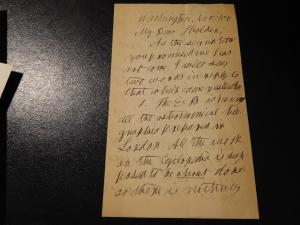 Washington, Nov 5/00
My Dear Holden,
As the second letter
you promised me has
not come, I will say
two words in reply to
that which came yesterday
1. The E. B. is having
all the astronomical bio-
graphies prepared in
London. All the work
on the Cyclopedia is sup-
posed to be about done
so there is nothing